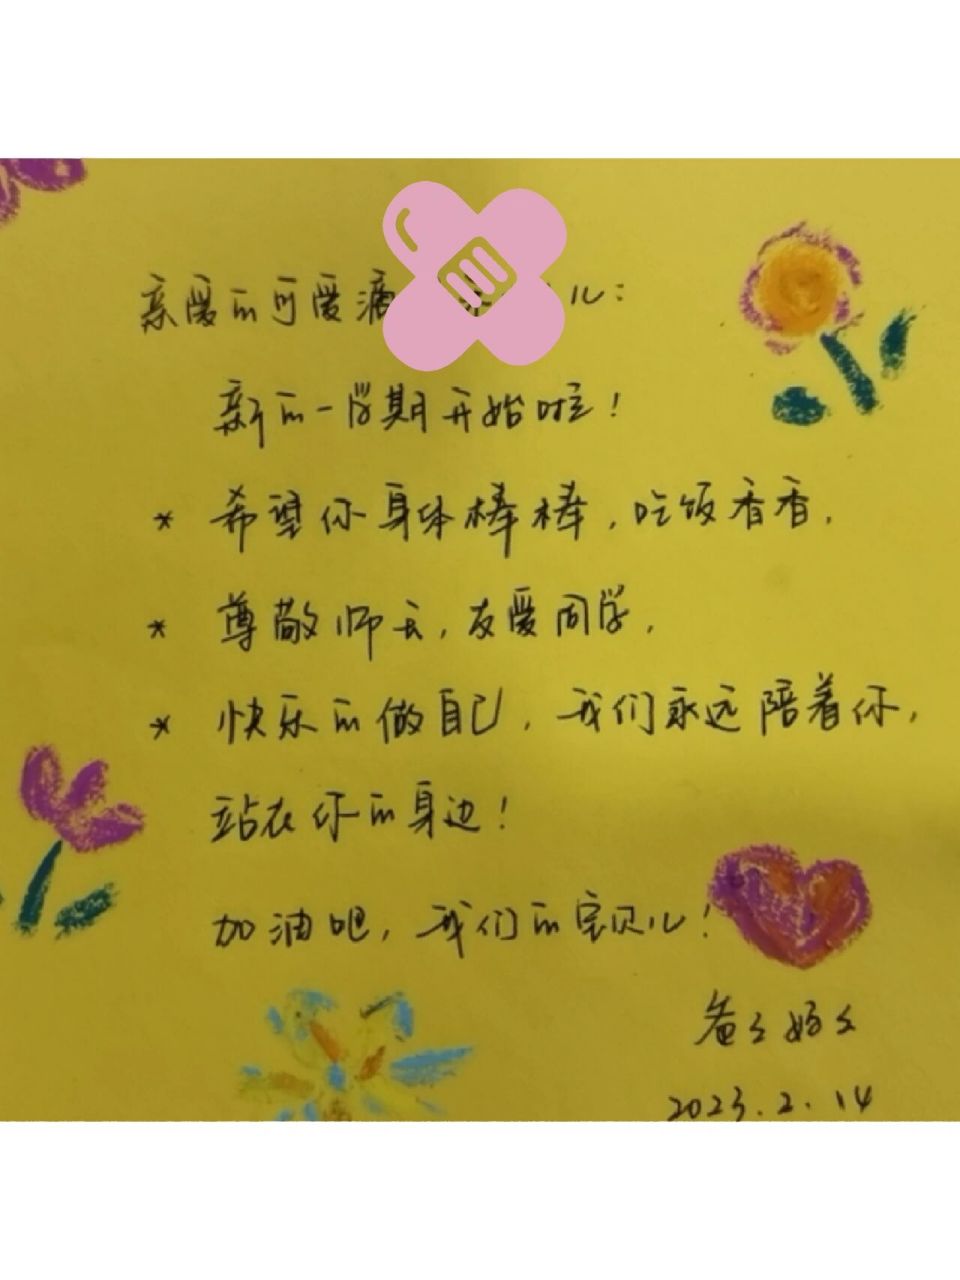 亲爱的可爱滴儿：
新的一学期开始啦！
* 希望你身体棒棒，吃饭香香，
* 尊敬师长，友爱同学，
* 快乐的做自己，我们永远陪着你，
站在你的身边！
加油吧，我们的宝贝儿！
爸爸妈妈
2023.2.14